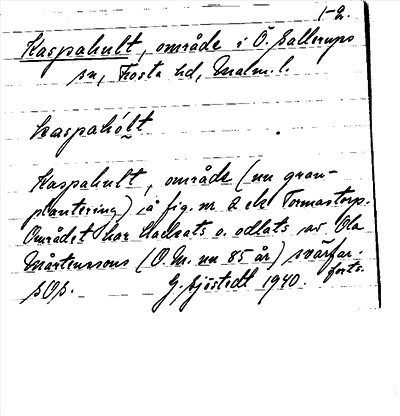 1-2.
Kaspahult, område i Ö. Sallerups
sn, Frosta hd, Malm. l.
kaspahólt
Kaspahult, område (nu gran-
plantering) å fig. nr 2 ch Tormastorp.
Området har hackats o. odlats av Ola
Mårtenssons (O.M. nu 85 år) svärfar.
forts.
sOs. G. Sjöstedt 1940.